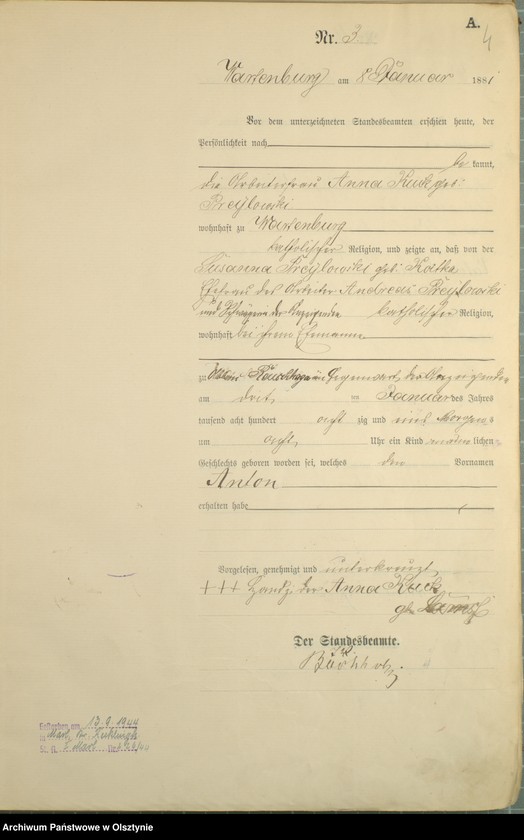 A.
4
Nr. 3
Wartenburg am 8 Januar 1881
Vor dem unterzeichneten Standesbeamten erschien heute, der
Persönlichkeit nach
be kannt,
die Arbeiterfrau Anna Kuck geb:
Preylowski
wohnhaft zu Wartenburg
katholischer Religion, und zeigte an, daß von der
Susanna Preylowski geb: Kotka
Ehefrau des Arbeiter Andreas Preylowski
und Schwägerin der Anzeigenden katholischer Religion,
wohnhaft bei ihrem Ehemanne
zu Klein in Gegenwart der Anzeigenden
am drei ten Januar des Jahres
tausend acht hundert acht zig und eins Morgens
um acht Uhr ein Kind männlichen
Geschlechts geboren worden sei, welches den Vornamen
Anton
erhalten habe
Vorgelesen, genehmigt und unterkreuzt
+++ Handz. der Anna Kuck
geb
Der Standesbeamte.
Buchholz
Gestorben am 13.9.1944
in
St. A. Nr.
Archiwum Państwowe w Olsztynie